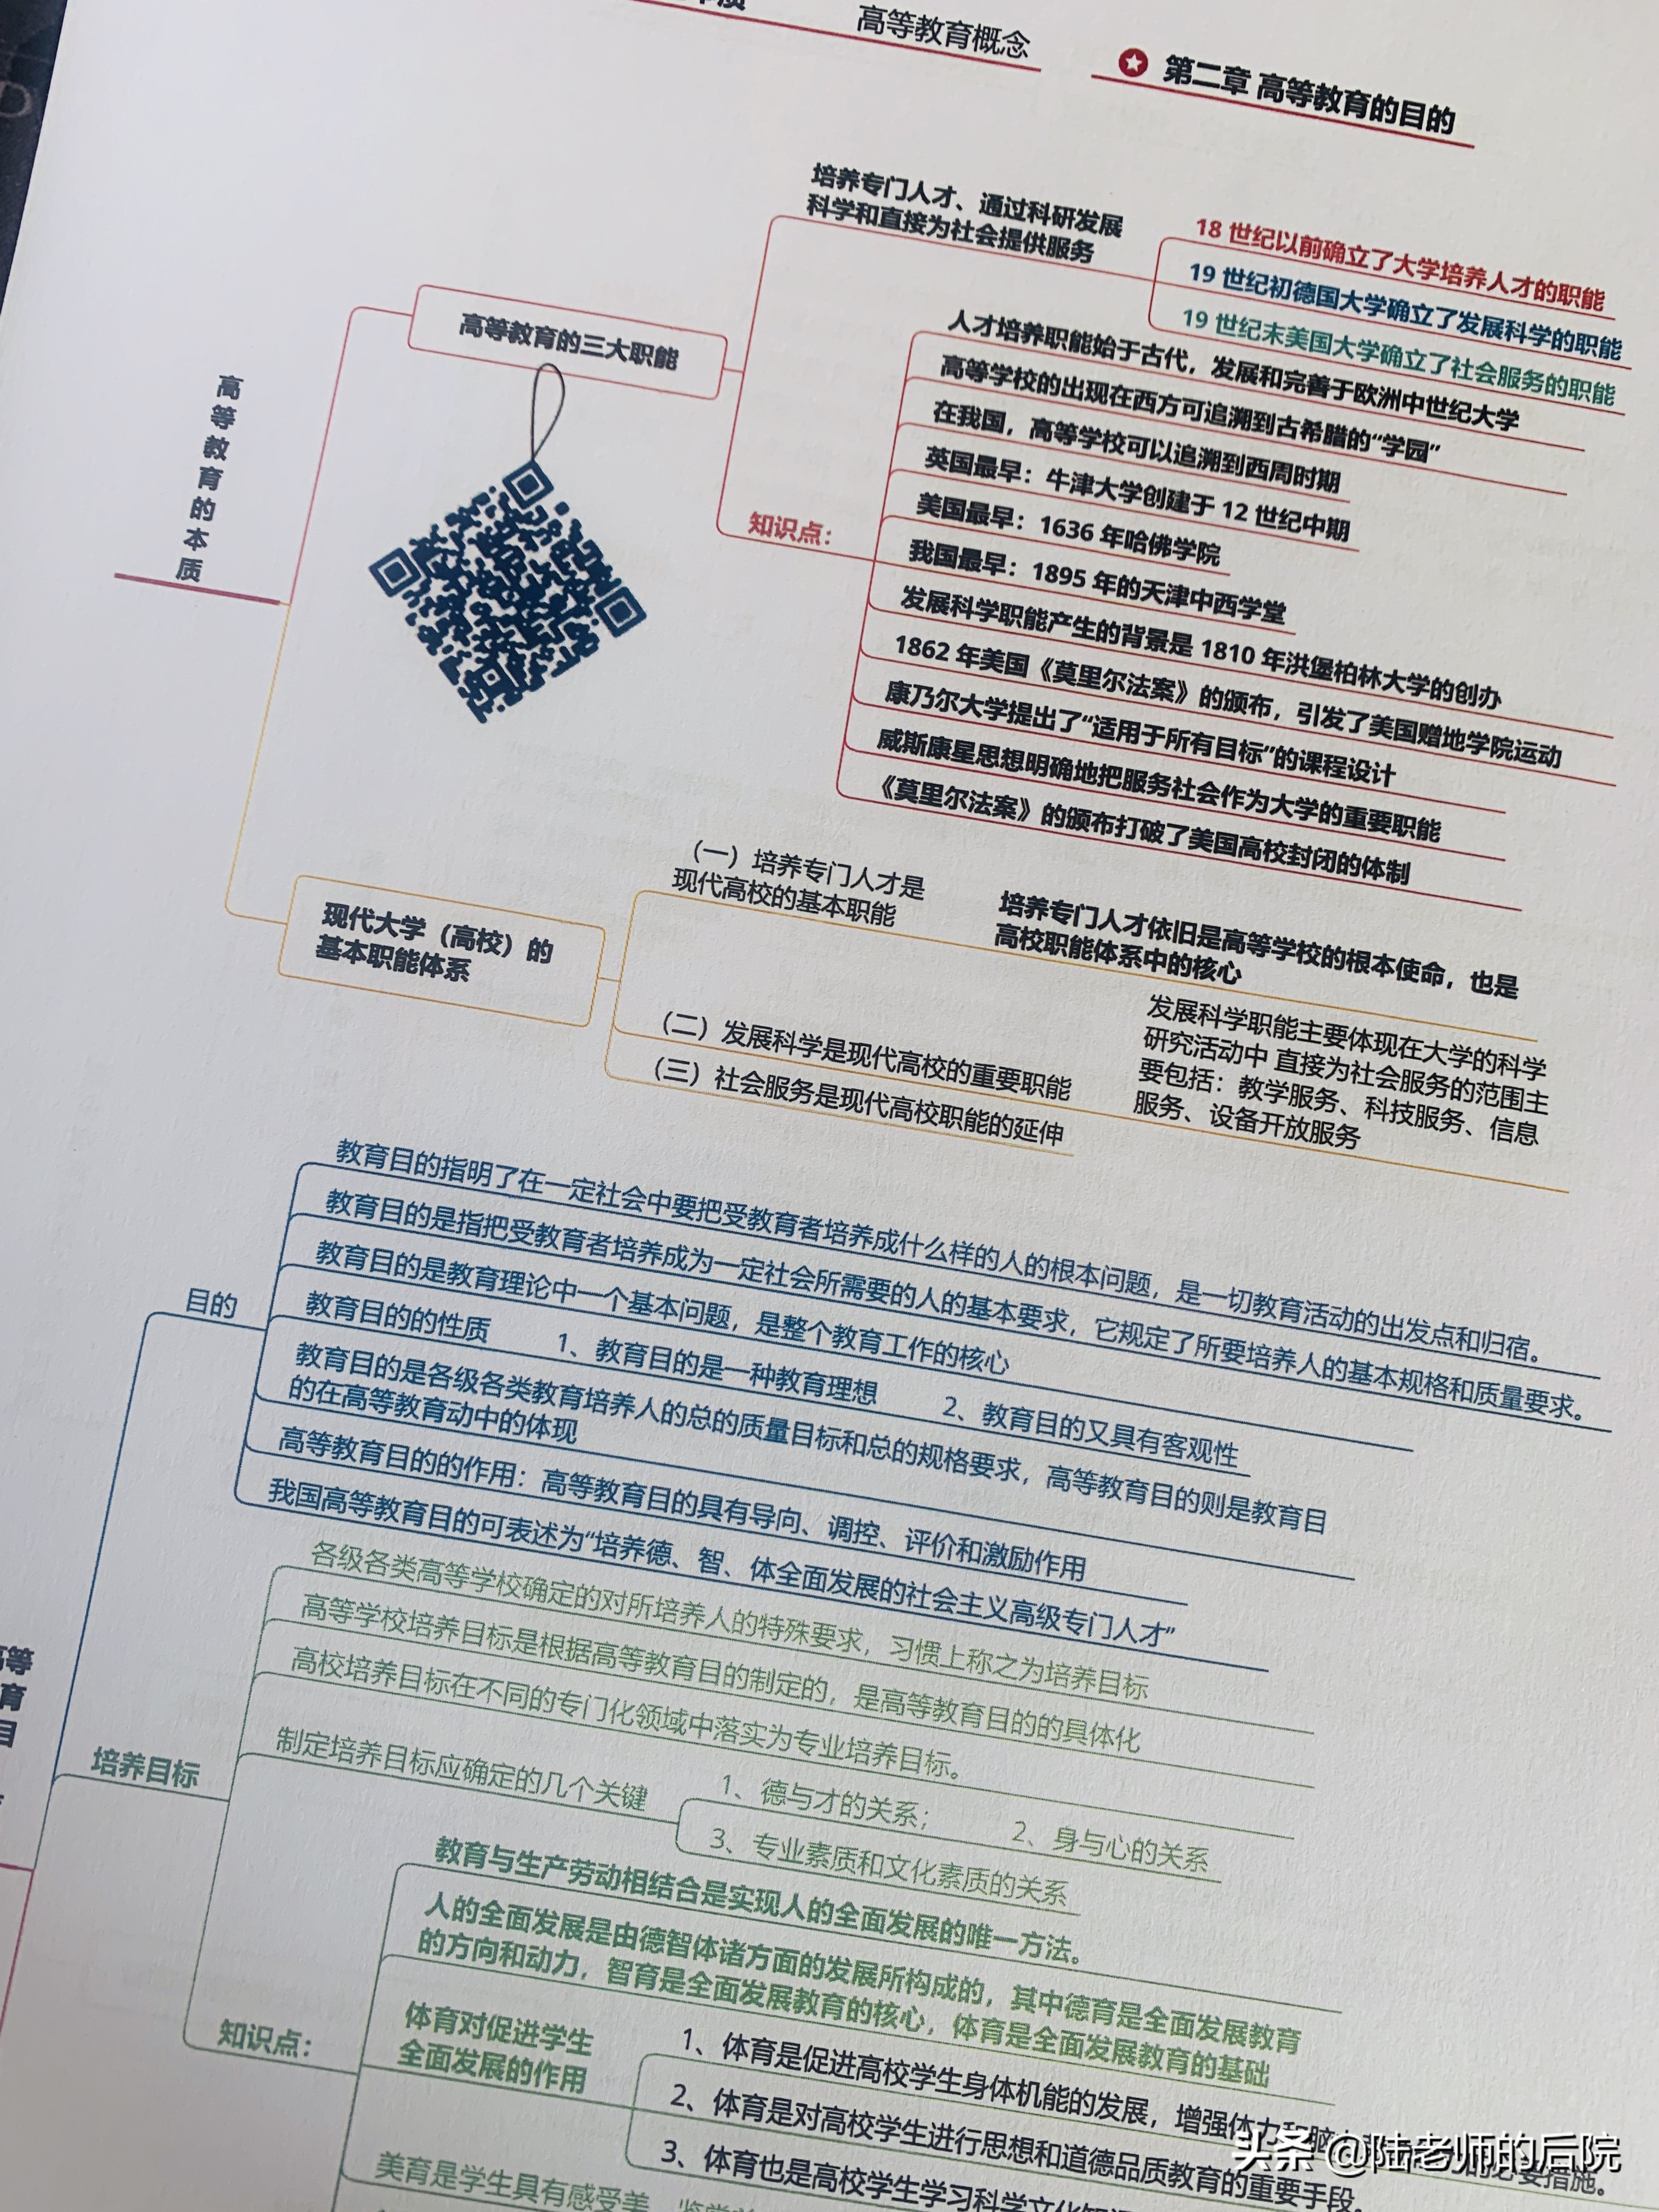 高等教育概念
第二章 高等教育的目的
高等教育的本质
高等教育的三大职能
培养专门人才、通过科研发展
科学和直接为社会提供服务
18 世纪以前确立了大学培养人才的职能
19 世纪初德国大学确立了发展科学的职能
19 世纪末美国大学确立了社会服务的职能
知识点：
人才培养职能始于古代，发展和完善于欧洲中世纪大学
高等学校的出现在西方可追溯到古希腊的“学园”
在我国，高等学校可以追溯到西周时期
英国最早：牛津大学创建于 12 世纪中期
美国最早：1636 年哈佛学院
我国最早：1895 年的天津中西学堂
发展科学职能产生的背景是 1810 年洪堡柏林大学的创办
1862 年美国《莫里尔法案》的颁布，引发了美国赠地学院运动
康乃尔大学提出了“适用于所有目标”的课程设计
威斯康星思想明确地把服务社会作为大学的重要职能
《莫里尔法案》的颁布打破了美国高校封闭的体制
现代大学（高校）的
基本职能体系
（一）培养专门人才是
现代高校的基本职能
培养专门人才依旧是高等学校的根本使命，也是
高校职能体系中的核心
（二）发展科学是现代高校的重要职能
发展科学职能主要体现在大学的科学
研究活动中 直接为社会服务的范围主
要包括：教学服务、科技服务、信息
服务、设备开放服务
（三）社会服务是现代高校职能的延伸
目的
教育目的指明了在一定社会中要把受教育者培养成什么样的人的根本问题，是一切教育活动的出发点和归宿。
教育目的是指把受教育者培养成为一定社会所需要的人的基本要求，它规定了所要培养人的基本规格和质量要求。
教育目的是教育理论中一个基本问题，是整个教育工作的核心
教育目的的性质 1、教育目的是一种教育理想 2、教育目的又具有客观性
教育目的是各级各类教育培养人的总的质量目标和总的规格要求，高等教育目的则是教育目
的在高等教育动中的体现
高等教育目的的作用：高等教育目的具有导向、调控、评价和激励作用
我国高等教育目的可表述为“培养德、智、体全面发展的社会主义高级专门人才”
培养目标
各级各类高等学校确定的对所培养人的特殊要求，习惯上称之为培养目标
高等学校培养目标是根据高等教育目的制定的，是高等教育目的的具体化
高校培养目标在不同的专门化领域中落实为专业培养目标。
制定培养目标应确定的几个关键
1、德与才的关系； 2、身与心的关系
3、专业素质和文化素质的关系
知识点：
教育与生产劳动相结合是实现人的全面发展的唯一方法。
人的全面发展是由德智体诸方面的发展所构成的，其中德育是全面发展教育
的方向和动力，智育是全面发展教育的核心，体育是全面发展教育的基础
体育对促进学生
全面发展的作用
1、体育是促进高校学生身体机能的发展，增强体力和脑
2、体育是对高校学生进行思想和道德品质教育的重要手段。
3、体育也是高校学生学习科学文化知识
美育是学生具有感受美、鉴赏美
头条 @陆老师的后院